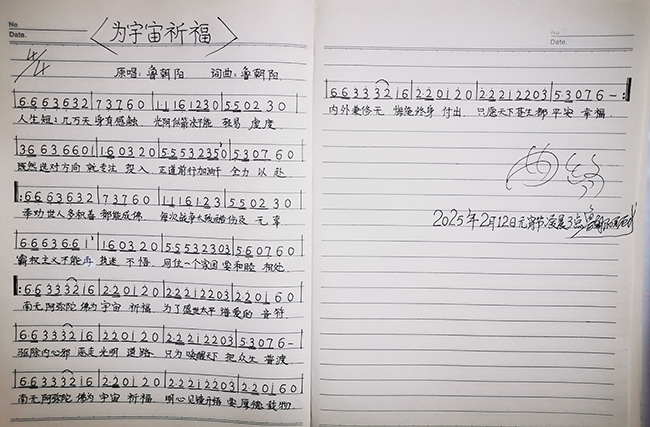 No
Date.
〈为宇宙祈福〉
4/4
原唱:鲁朝阳 词曲:鲁朝阳
6 6 6 3 6 3 2 | 7 3 7 6 0 | 1 1 1 6 1 2 3 0 | 5 5 0 2 3 0
人生短短几万天 身有感触 光阴似箭 不能 轻易 虚度
3 6 6 3 6 6 0 1 | 1 6 0 3 2 0 | 5 5 5 3 2 3 5 0 | 5 3 0 7 6 0
既然选对方向 就专注 投入 正道前行加油干 全力 以赴
6 6 6 3 6 3 2 | 7 3 7 6 0 | 1 1 1 6 1 2 3 0 | 5 5 0 2 3 0
奉劝世人多积善 都能成佛 每次战争 伤及 无辜
6 6 3 6 3 6 6 1 | 1 6 0 3 2 0 | 5 5 5 3 2 3 0 3 | 5 3 0 7 6 0
霸权主义不能再 执迷 不悟 同住一个家园 要和睦 相处
6 6 3 3 3 2 1 6 | 2 2 0 1 2 0 | 2 2 2 1 2 2 0 3 | 2 2 0 1 6 0
南无阿弥陀 佛为 宇宙 祈福 为了盛世太平 谱爱的 音符
6 6 3 3 3 2 1 6 | 2 2 0 1 2 0 | 2 2 2 1 2 2 0 3 | 5 3 0 7 6 -
驱除内心邪 恶走 光明 道路 只为唤醒天下 把众生 普渡
6 6 3 3 3 2 1 6 | 2 2 0 1 2 0 | 2 2 2 1 2 2 0 3 | 2 2 0 1 6 0
南无阿弥陀 佛为 宇宙 祈福 明心见性开悟 要厚德 载物
No
Date.
6 6 3 3 3 2 1 6 | 2 2 0 1 2 0 | 2 2 2 1 2 2 0 3 | 5 3 0 7 6 - :
内外兼修无 悔 终身 付出 只愿天下苍生都 平安 幸福
2025年2月12日元宵节凌晨3点